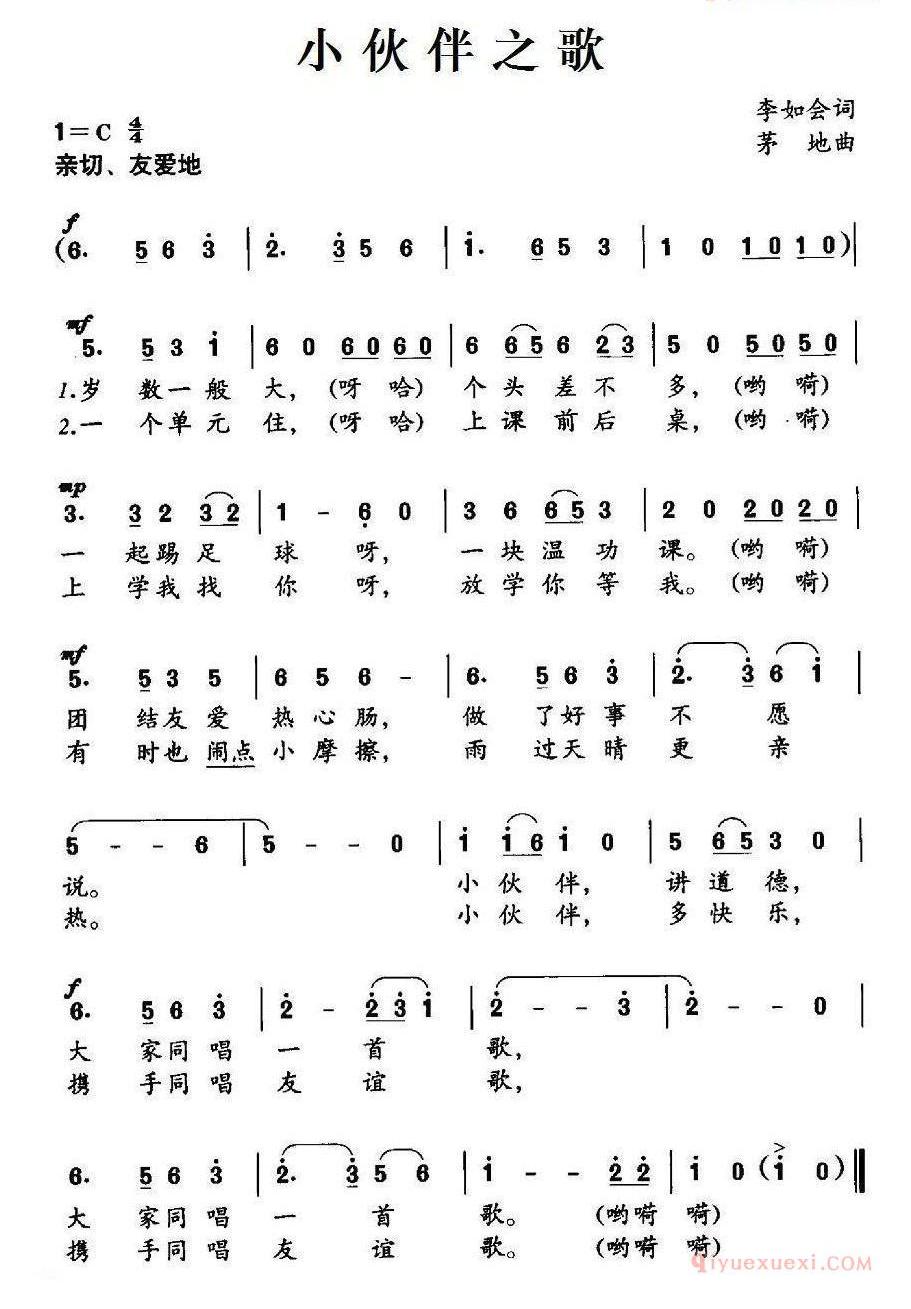 小伙伴之歌
李如会词
1=C 4/4
茅 地曲
亲切、友爱地
f
(6. 5 6 3 | 2. 3 5 6 | 1. 6 5 3 | 1 0 1 0 1 0)|
mf
5. 5 3 1 | 6 0 6 0 6 0 | 6 6 5 6 2 3 | 5 0 5 0 5 0 |
1.岁 数一般 大,(呀 哈) 个头差不 多,(哟 嗬)
2.一 个单元 住,(呀 哈) 上课前后 桌,(哟 嗬)
mp
3. 3 2 3 2 | 1 - 6 0 | 3 6 6 5 3 | 2 0 2 0 2 0 |
一 起踢足 球 呀, 一块温功 课。(哟 嗬)
上 学我找 你 呀, 放学你等 我。(哟 嗬)
mf
5. 5 3 5 | 6 5 6 - | 6. 5 6 3 | 2. 3 6 1 |
团 结友爱 热心肠, 做 了好事 不 愿
有 时也闹点小摩擦, 雨 过天晴 更 亲
5 - - 6 | 5 - - 0 | 1 1 6 1 0 | 5 6 5 3 0 |
说。 小伙伴, 讲道德,
热。 小伙伴, 多快乐,
f
6. 5 6 3 | 2 - 2 3 1 | 2 - - 3 | 2 - - 0 |
大 家同唱 一 首 歌,
携 手同唱 友 谊 歌,
6. 5 6 3 | 2. 3 5 6 | 1 - - 2 2 | 1 0 (1 0)‖
大 家同唱 一 首 歌。 (哟嗬 嗬)
携 手同唱 友 谊 歌。 (哟嗬 嗬)
qiyuexuexi.com